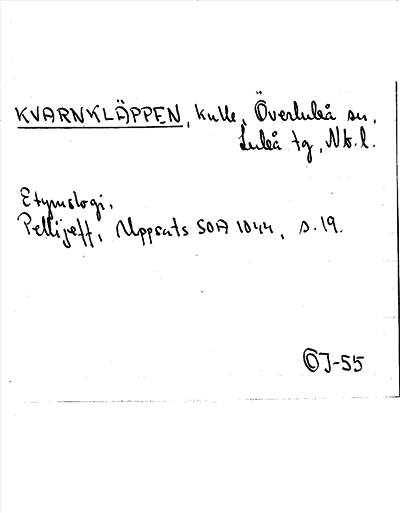 KVARNKLÄPPEN, kulle, Överluleå sn,
Luleå tg, Nb.l.
Etymologi.
Pellijeff, Uppsats SOA 1044, s. 19.
OJ-55